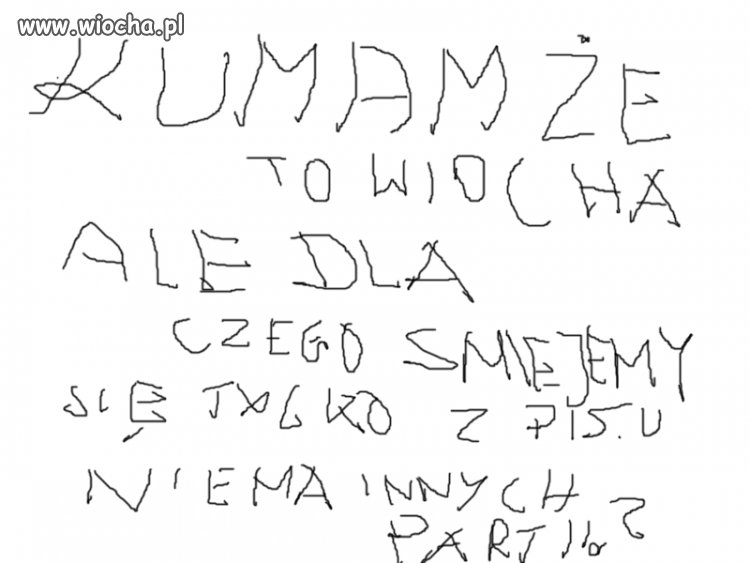 www.wiocha.pl
KUMAM ŻE
TO WIOCHA
ALE DLA
CZEGO SMIEJEMY
SIĘ TYLKO Z PIS.U
NIEMA INNYCH
PARTII?